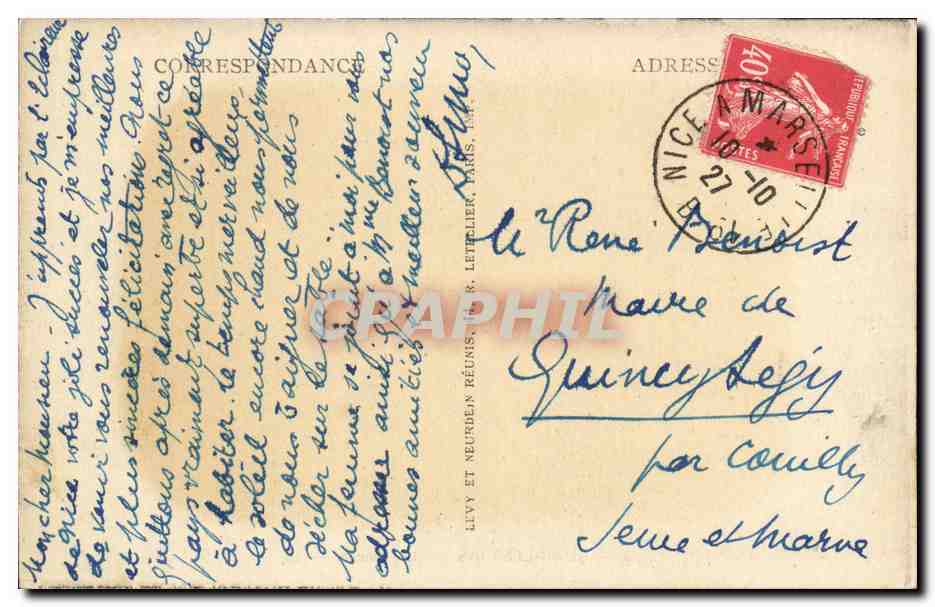 CORRESPONDANCE
ADRESS
Mon cher Maurien - J'apprends par l'Eclaireur
de Nice votre joli succès et je m'empresse
de venir vous renouveler nos meilleures
et plus sincères félicitations. Nous
quittons après demain avec regret ce
pays vraiment superbe et si agréable
à habiter. Le temps merveilleux,
le soleil encore chaud nous permettant
de nous baigner et de nous
sécher sur le sable
Ma femme se joint à moi pour vous
adresser ainsi qu'à Mme Benoist nos
bonnes amitiés et meilleur souvenir
LEVY ET NEURDEIN RÉUNIS, LETELLIER, PARIS, IMP.
40
REPUBLIQUE FRANÇAISE
POSTES
NICE A MARSEILLE
10 -10
27
Mr René Benoist
Maire de
Quincy Ségy
par Couilly
Seine et Marne
CRAPHIL